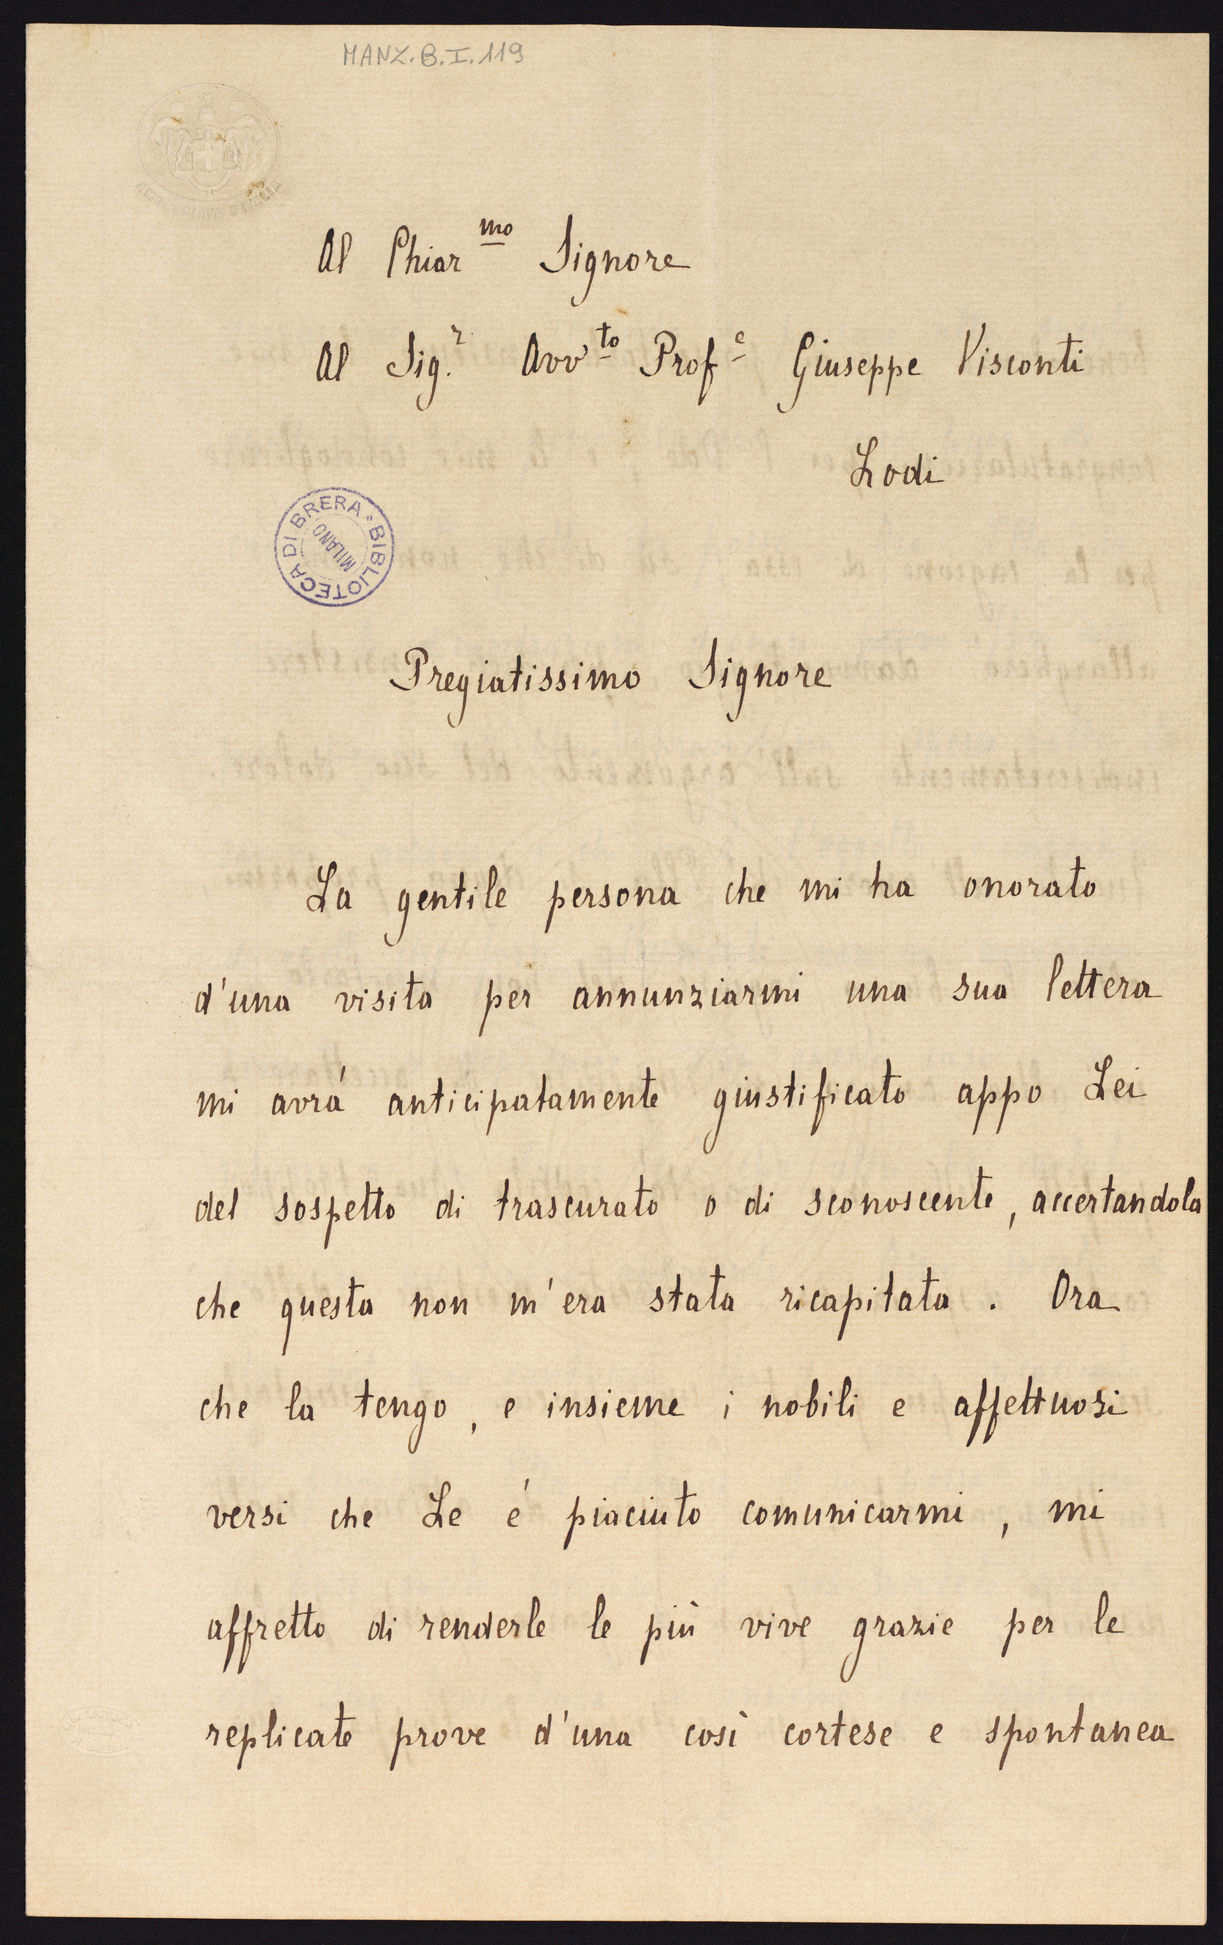 MANZ.B.I.119
Al Chiar.mo Signore
Al Sig.r Avv.to Prof.e Giuseppe Visconti
Lodi
BIBLIOTECA DI BRERA
MILANO
Pregiatissimo Signore
La gentile persona che mi ha onorato
d'una visita per annunziarmi una sua lettera
mi avrá anticipatamente giustificato appo Lei
del sospetto di trascurato o di sconoscente, accertandola
che questa non m'era stata ricapitata. Ora
che la tengo, e insieme i nobili e affettuosi
versi che Le é piaciuto comunicarmi, mi
affretto di renderle le più vive grazie per le
replicate prove d'una così cortese e spontanea